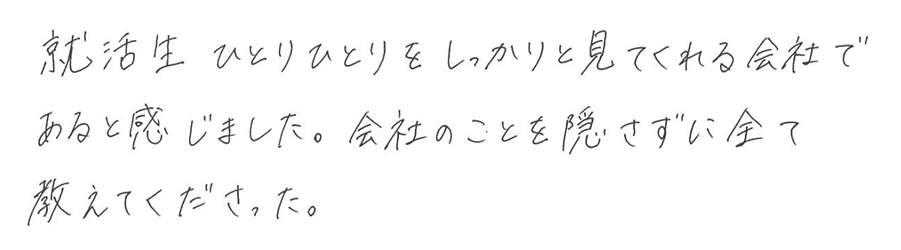 就活生 ひとりひとりをしっかりと見てくれる会社で
あると感じました。会社のことを隠さずに全て
教えてくださった。